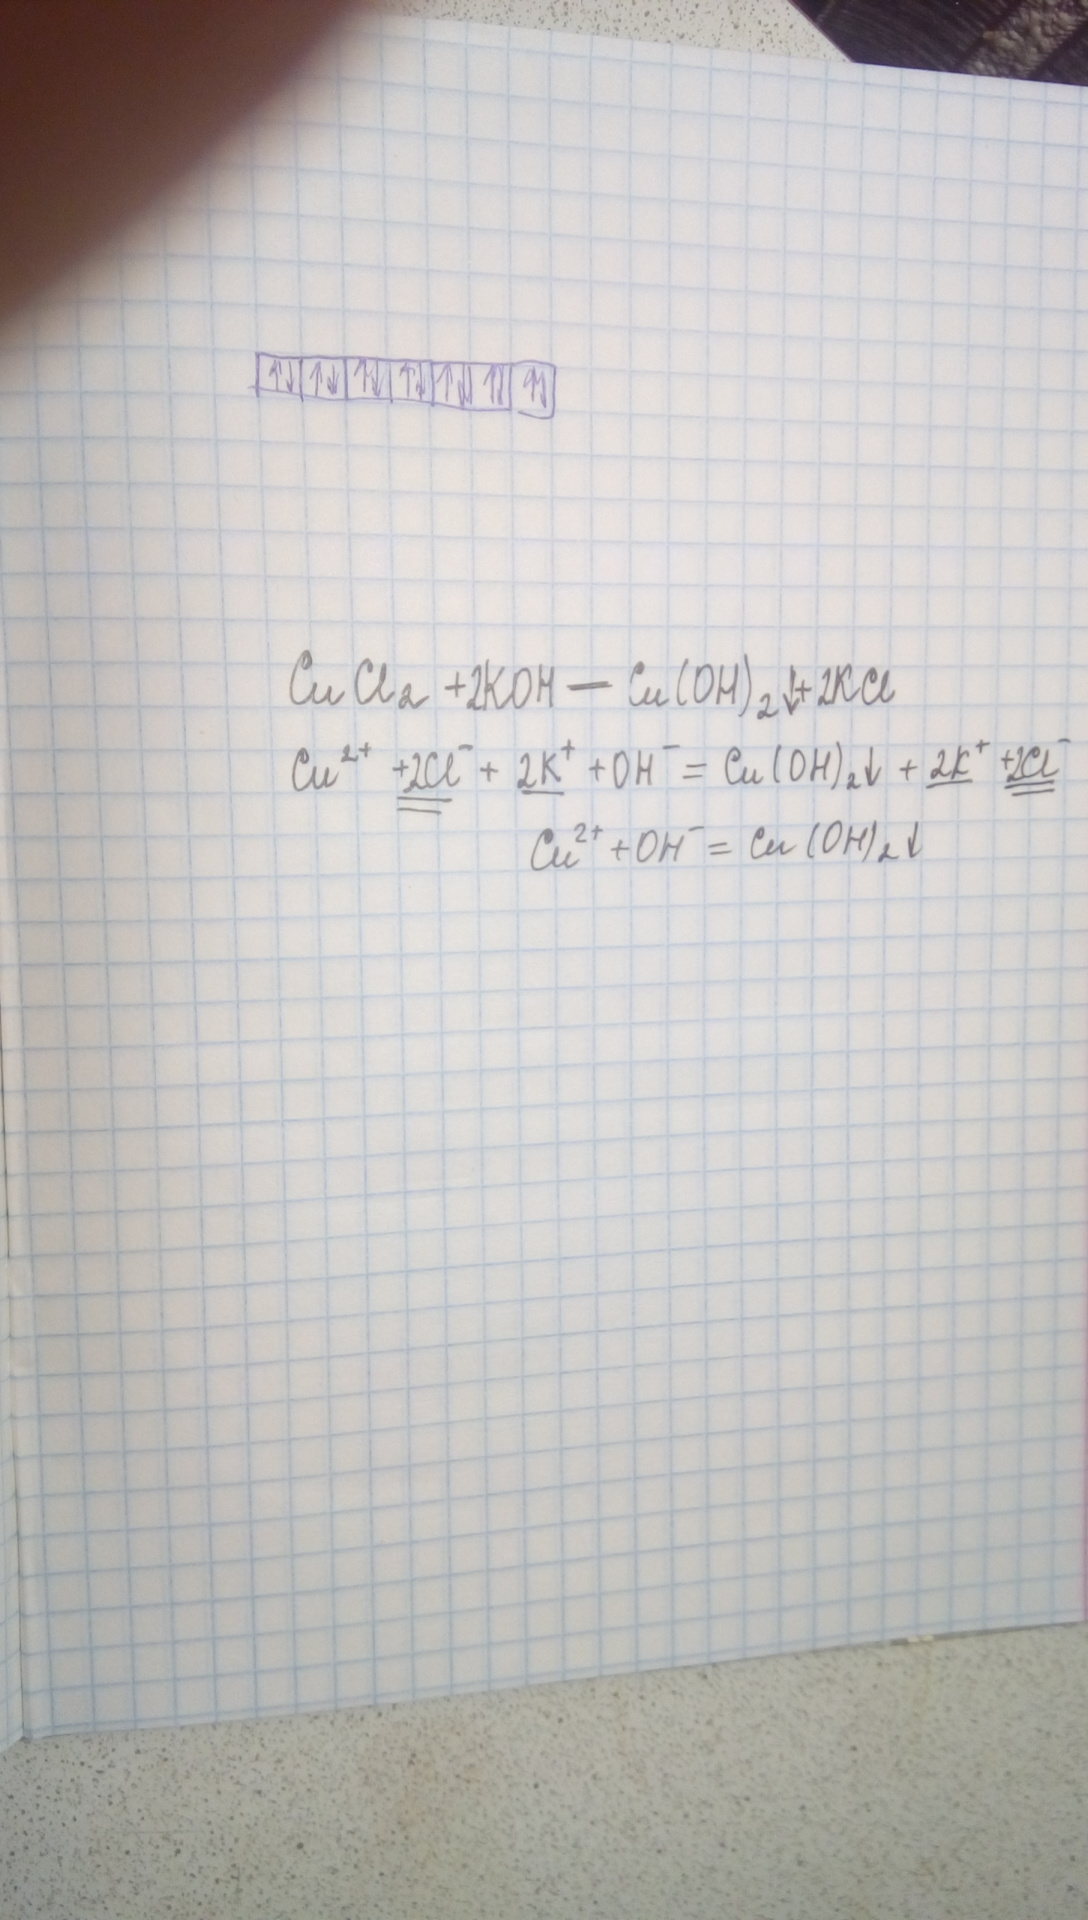 ↑↓ ↑↓ ↑↓ ↑↓ ↑↓ ↑↓ ↑↓
CuCl₂ +2KOH — Cu(OH)₂↓+2KCl
Cu²⁺ +2Cl⁻ + 2K⁺ +OH⁻ = Cu(OH)₂↓ + 2K⁺ +2Cl⁻
Cu²⁺ +OH⁻ = Cu(OH)₂↓